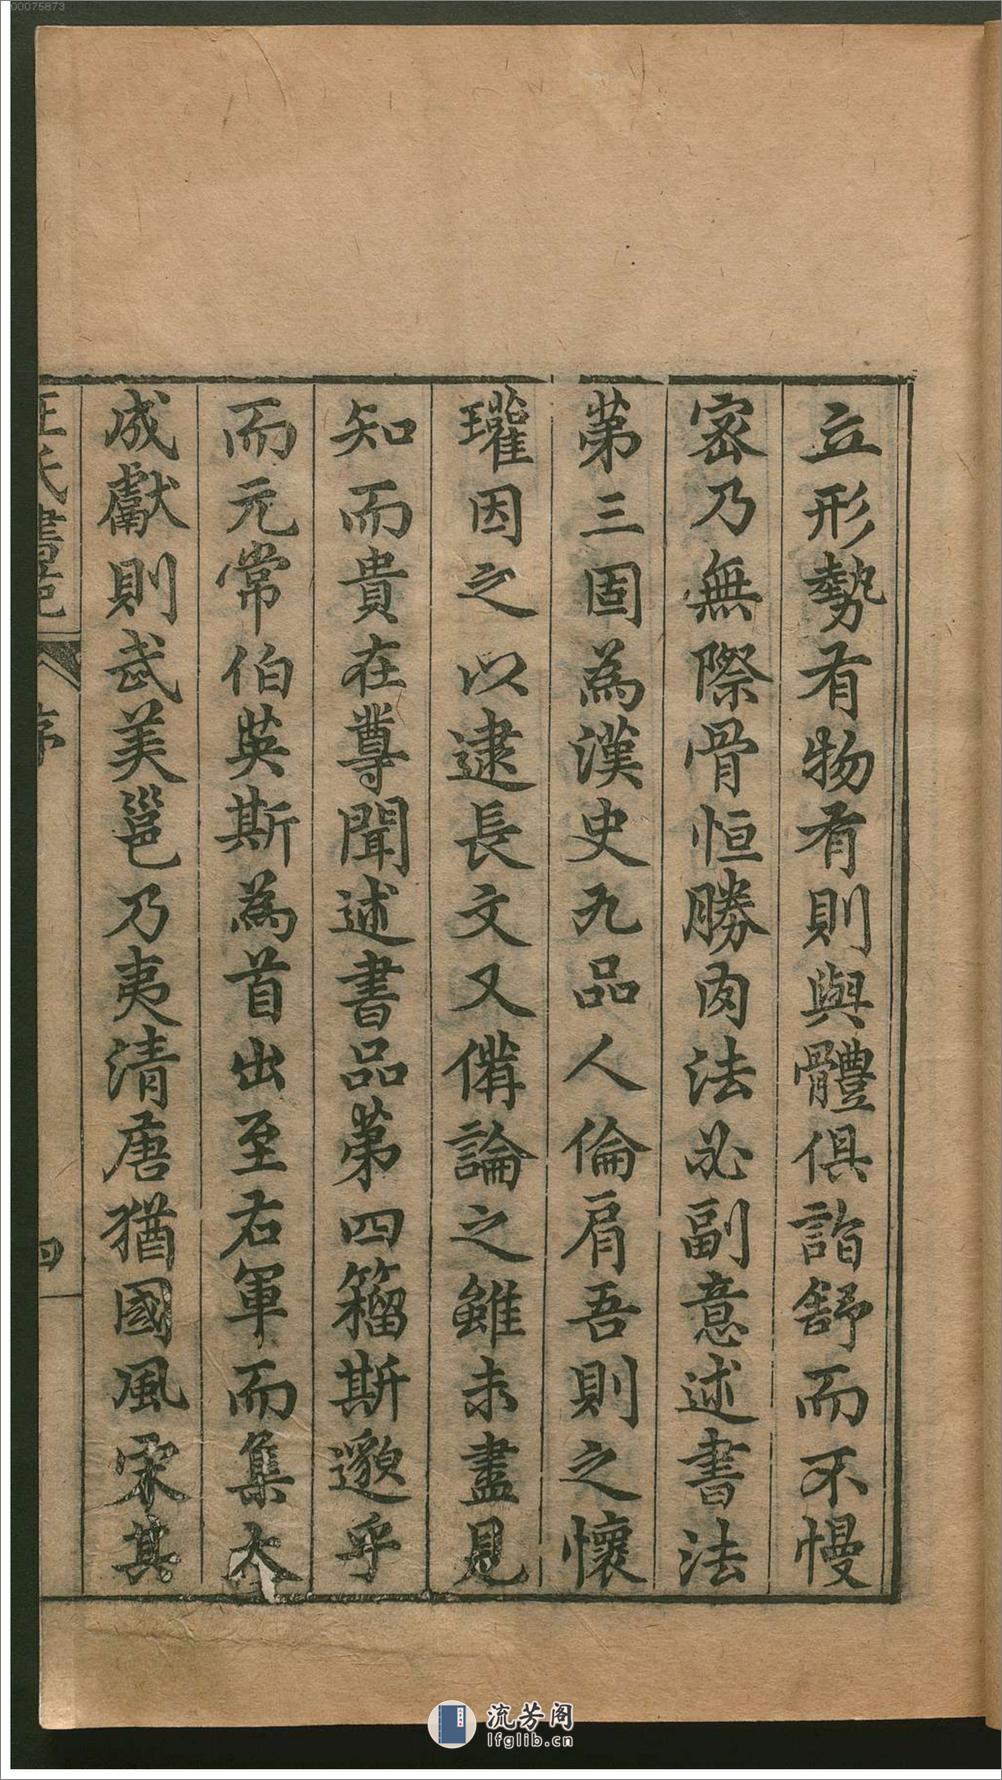 00075873
立形勢有物有則與體俱詣舒而不慢
密乃無際骨恒勝肉法必副意述書法
第三固為漢史九品人倫肩吾則之懷
瓘因之以逮長文又備論之雖未盡見
知而貴在尊聞述書品第四籀斯邈乎
而元常伯英斯為首出至右軍而集大
成獻則武美邕乃夷清唐猶國風宋其
汪氏書苑
序
四
流芳阁
lfglib.cn